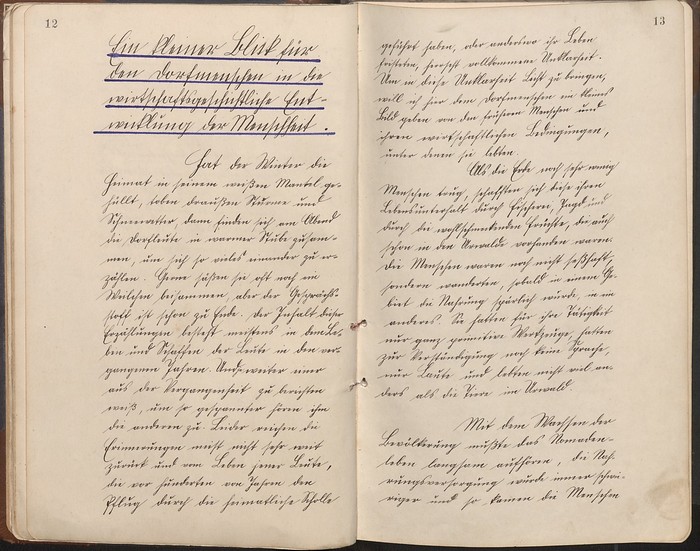 12
Ein kleiner Blick für
den Dorfmenschen in die
wirtschaftsgeschichtliche Ent-
wicklung der Menschheit.
Hat der Winter die
Heimat in seinem weißen Mantel ge-
hüllt, toben draußen Stürme und
Schneewetter, dann finden sich am Abend
die Dorfleute in warmer Stube zusam-
men, um sich so vieles einander zu er-
zählen. Gerne säßen sie oft noch ein
Weilchen beisammen, aber der Gesprächs-
stoff ist schon zu Ende. Der Inhalt dieser
Erzählungen besteht meistens in dem Le-
ben und Schaffen der Leute in den ver-
gangenen Jahren. Und weiter einer
aus der Vergangenheit zu berichten
weiß, um so gespannter hören ihm
die anderen zu. Leider reichen die
Erinnerungen meist nicht sehr weit
zurück und vom Leben jener Leute,
die vor hunderten von Jahren den
Pflug durch die heimatliche Scholle
13
geführt haben, oder anderswo ihr Leben
fristeten, herrscht vollkommene Unklarheit.
Um in diese Unklarheit Licht zu bringen,
will ich hier dem Dorfmenschen ein kleines
Bild geben von den früheren Menschen und
ihren wirtschaftlichen Bedingungen,
unter denen sie lebten.
Als die Erde noch sehr wenig
Menschen trug, schafften sich diese ihren
Lebensunterhalt durch Fischerei, Jagd und
durch die wohlschmeckenden Früchte, die auch
schon in den Urwald vorhanden waren.
Die Menschen waren noch nicht seßhaft,
sondern wanderten, sobald in einem Ge-
biet die Nahrung spärlich wurde, in ein
anderes. Sie hatten für ihre Tätigkeit
nur ganz primitive Werkzeuge, hatten
zur Verständigung noch keine Sprache,
nur Laute und lebten nicht viel an-
ders als die Tiere im Urwald.
Mit dem Wachsen der
Bevölkerung mußte das Nomaden-
leben langsam aufhören, die Nah-
rungsversorgung wurde immer schwie-
riger und so kamen die Menschen